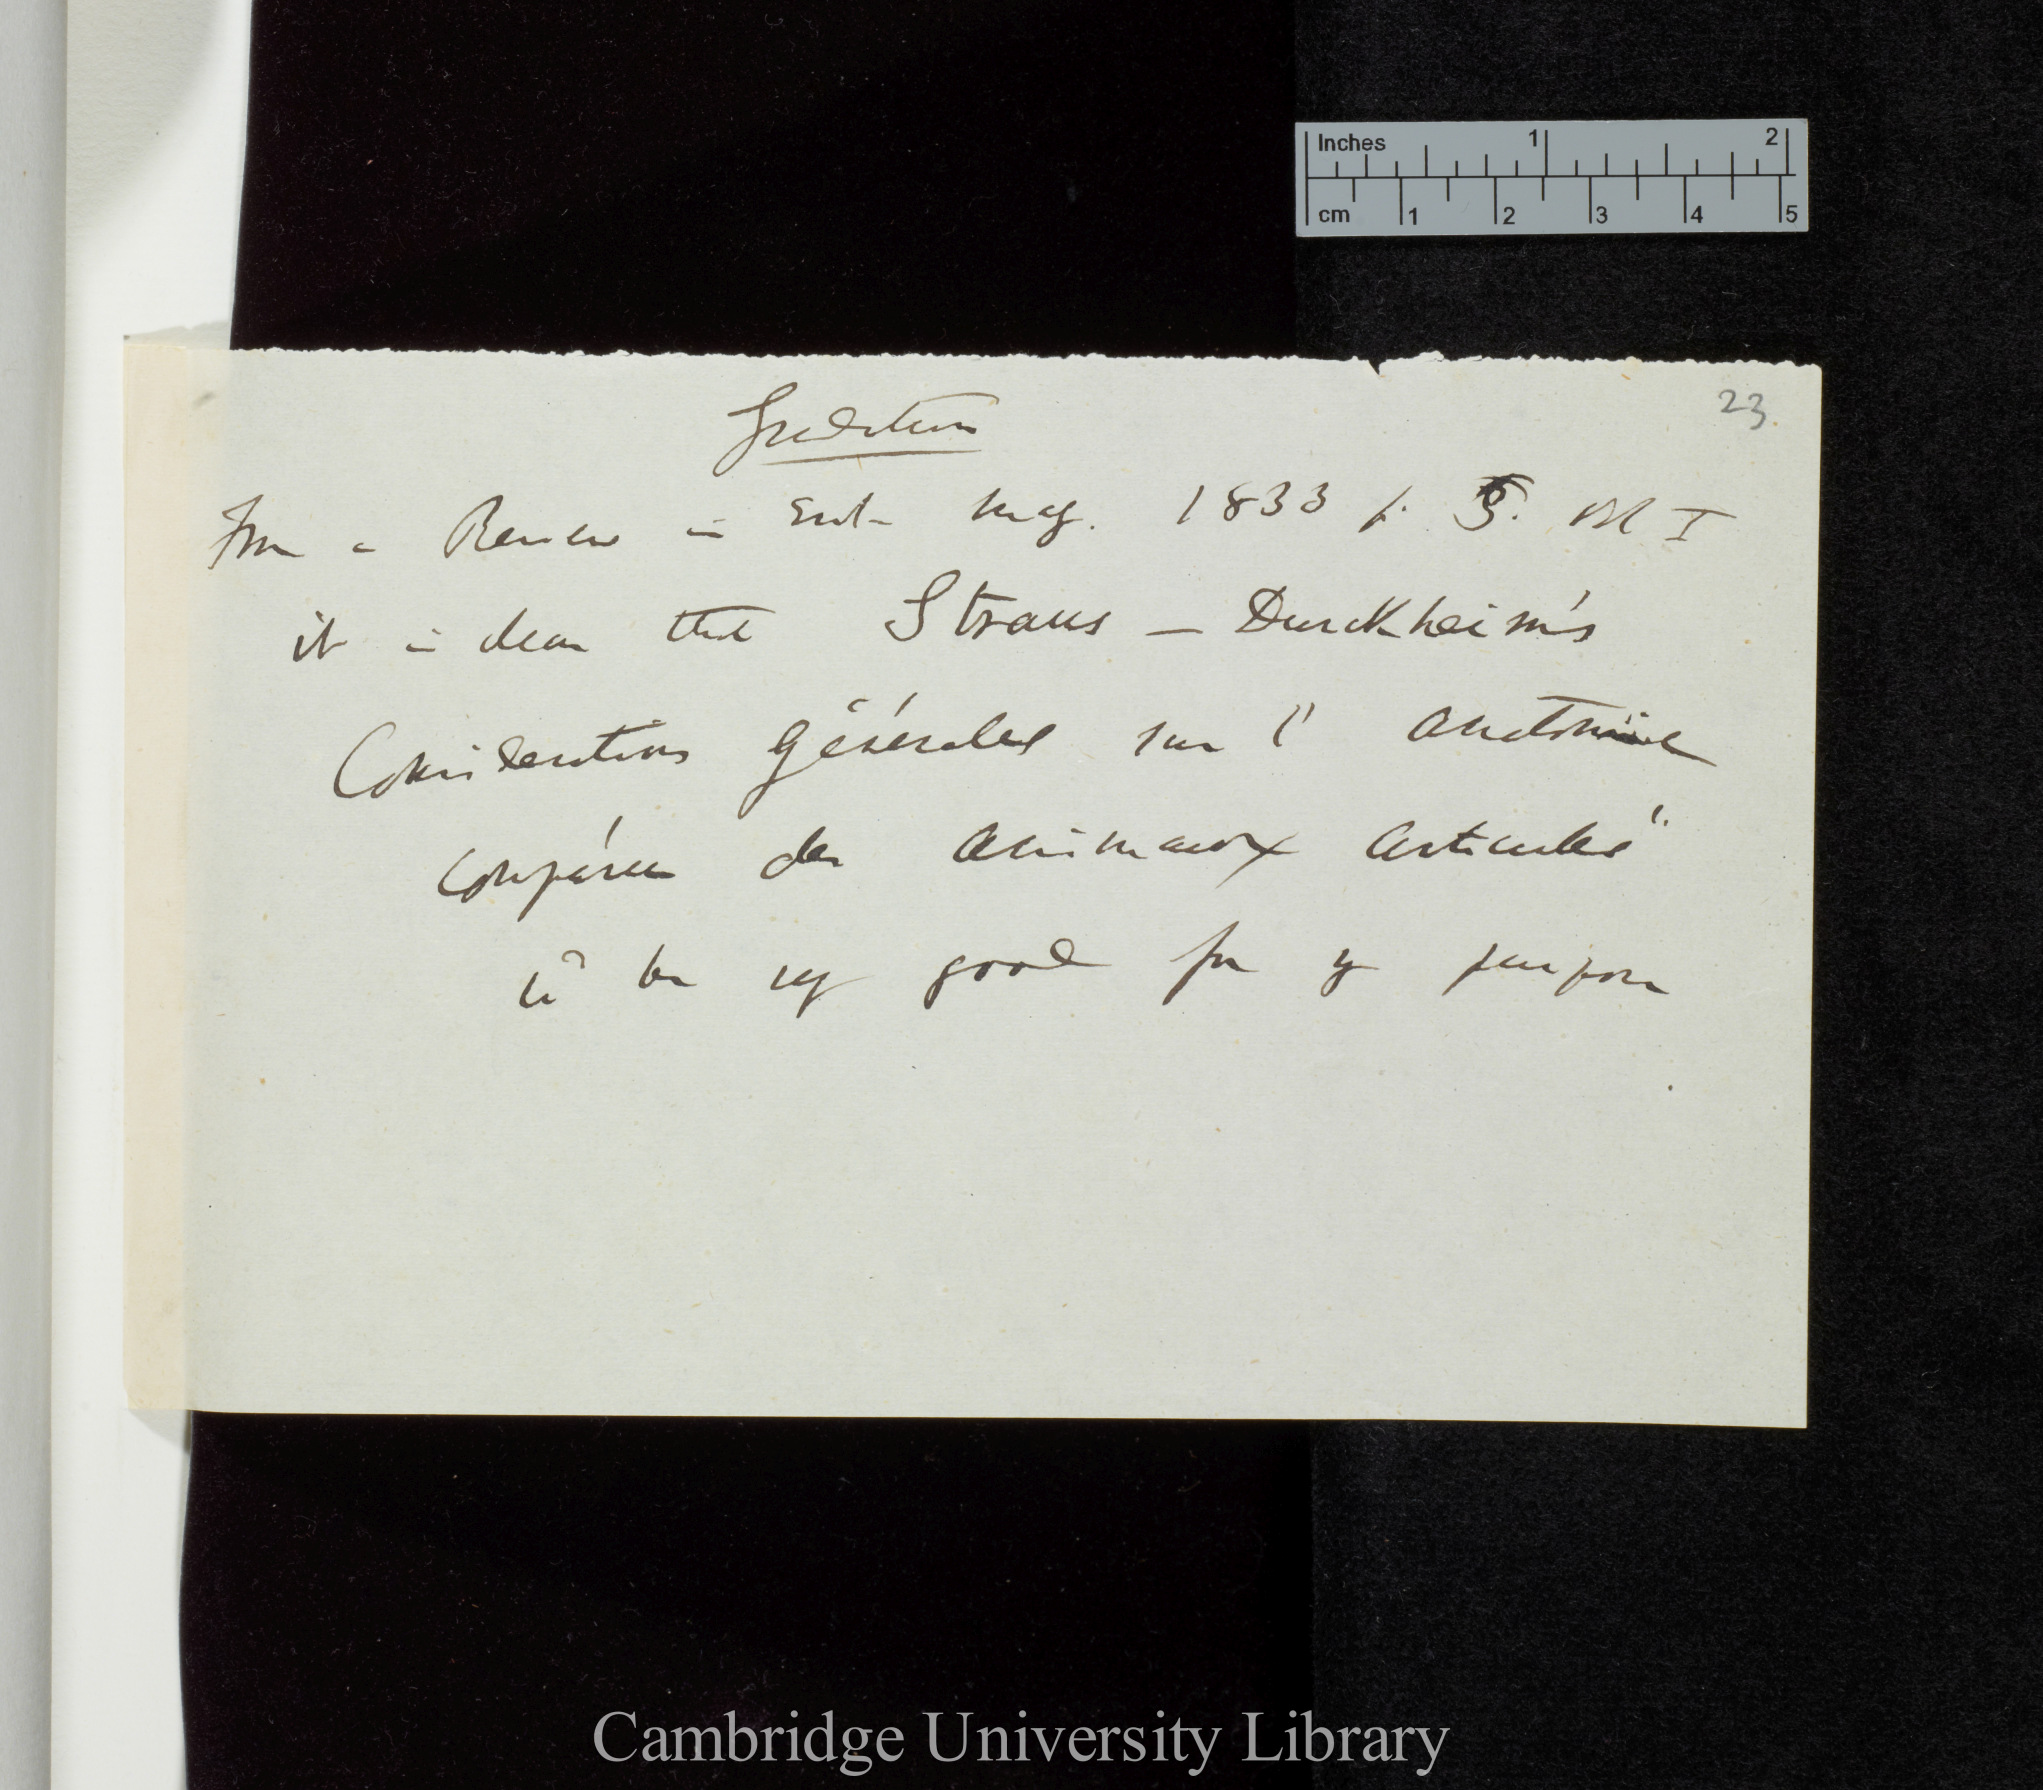 Inches 1 2
cm 1 2 3 4 5
23
Gradation
From a Review in Ent. Mag. 1833 p. 3. Vol I
it is clear that Straus-Durckheim's
Considerations générales sur l' anatomie
comparée des animaux articulés"
wd be very good for my purpose
Cambridge University Library